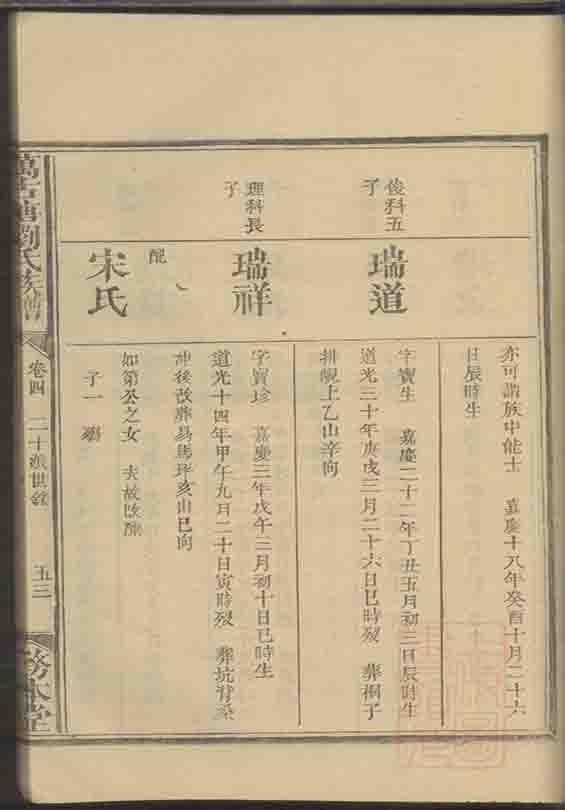 亦可謂族中能士　嘉慶十八年癸酉十月二十六
日辰時生
俊科五
子
瑞道
字寶生　嘉慶二十二年丁丑五月初三日辰時生
道光三十年庚戌三月二十六日巳時歿　葬桐子
排覜上乙山辛向
理科長
子
瑞祥
字寶珍　嘉慶三年戊午三月初十日巳時生
道光十四年甲午九月二十日寅時歿　葬坑背
冲後改葬易馬坪亥山巳向
配
宋氏
如第公之女　夫故改醮
子一　殤
劉氏族譜
卷四
二十派世錄
五三
務本堂